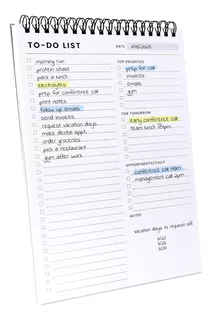 TO-DO LIST
DATE
morning run
protein shake
pack a lunch
electrolytes
prep for conference call
print notes
follow up emails
send invoices
request vacation days
make dental appt.
order groceries
pick a restaurant
gym after work
TOP PRIORITIES
prep for call
invoices
emails
gym
FOR TOMORROW
early conference call
team lunch 12pm
APPOINTMENTS/CALLS
conference call 11am
management call 2pm
NOTES
vacation days to request off:
5/23
5/24